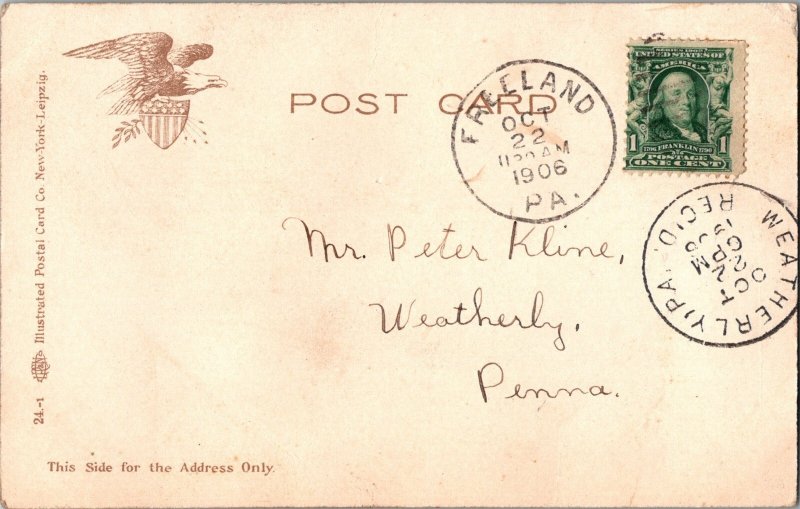 POST CARD
FREELAND
OCT
22
1130 AM
1906
PA.
SERIES 1902
UNITED STATES OF
AMERICA
1 1706 FRANKLIN 1790 1
POSTAGE
ONE CENT
WEATHERLY, PA.
REC'D.
OCT
2 PM
Mr. Peter Kline,
Weatherly,
Penna.
Illustrated Postal Card Co. New-York-Leipzig.
24.-1
This Side for the Address Only.